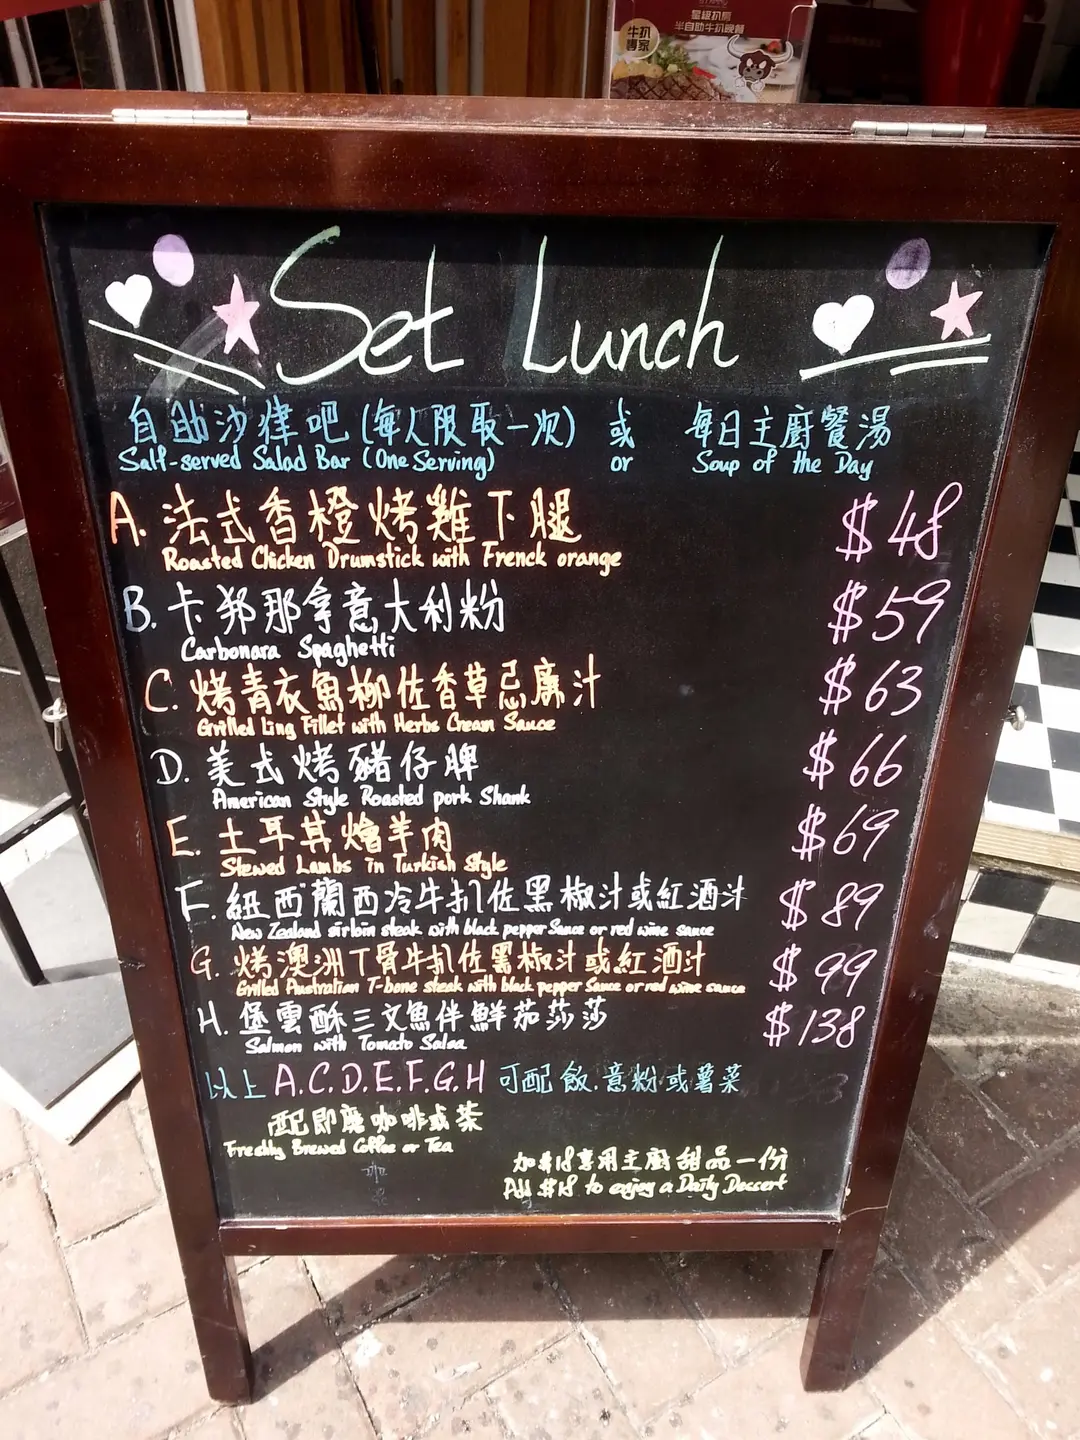 星級扒房
半自助牛扒晚餐
牛扒
專家
Set Lunch
自助沙律吧 (每人限取一次) 或 每日主廚餐湯
Self-served Salad Bar (One Serving) or Soup of the Day
A. 法式香橙烤雞下腿 $48
Roasted Chicken Drumstick with Frenck orange
B. 卡邦那拿意大利粉 $59
Carbonara Spaghetti
C. 烤青衣魚柳佐香草忌廉汁 $63
Grilled Ling Fillet with Herbs Cream Sauce
D. 美式烤豬仔脾 $66
American Style Roasted pork Shank
E. 土耳其燴羊肉 $69
Stewed Lambs in Turkish Style
F. 紐西蘭西冷牛扒佐黑椒汁或紅酒汁 $89
New Zealand sirloin steak with black pepper Sauce or red wine sauce
G. 烤澳洲T骨牛扒佐黑椒汁或紅酒汁 $99
Grilled Australian T-bone steak with black pepper Sauce or red wine sauce
H. 堡雲酥三文魚伴鮮茄莎莎 $138
Salmon with Tomato Salsa
以上 A.C.D.E.F.G.H 可配飯.意粉或薯菜
配即磨咖啡或茶
Freshly Brewed Coffee or Tea
加$18享用主廚甜品一份
Add $18 to enjoy a Daily Dessert